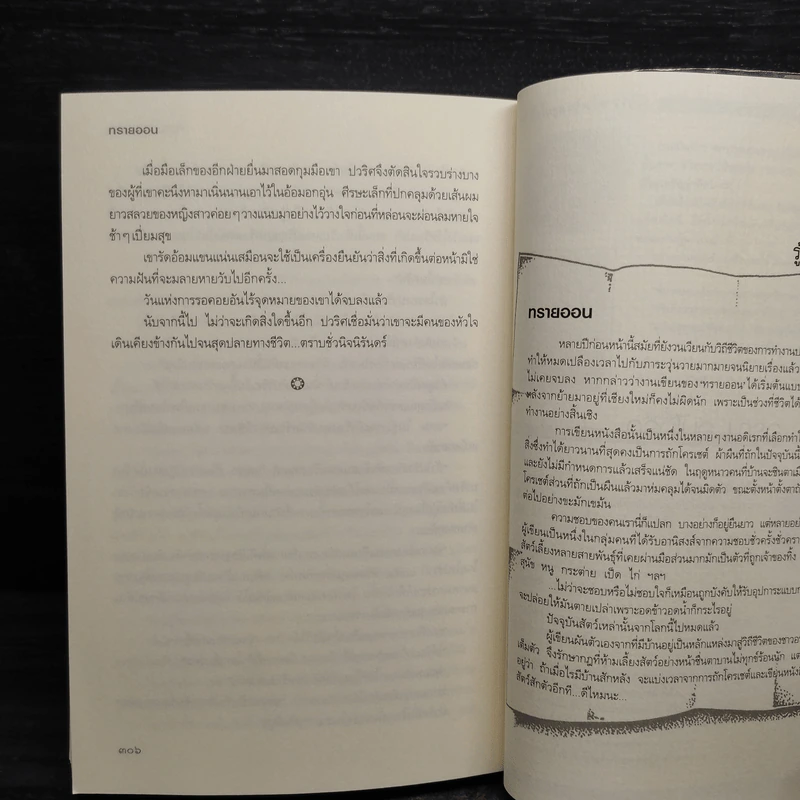 ทรายออน
เมื่อมือเล็กของอีกฝ่ายยื่นมาสอดกุมมือเขา ปวริศจึงตัดสินใจรวบร่างบาง
ของผู้ที่เขาคะนึงหามาเนิ่นนานเอาไว้ในอ้อมอกอุ่น ศีรษะเล็กที่ปกคลุมด้วยเส้นผม
ยาวสลวยของหญิงสาวค่อยๆ วางแนบมาอย่างไว้วางใจก่อนที่หล่อนจะผ่อนลมหายใจ
ช้าๆ เปี่ยมสุข
เขารัดอ้อมแขนแน่นเสมือนจะใช้เป็นเครื่องยืนยันว่าสิ่งที่เกิดขึ้นต่อหน้ามิใช่
ความฝันที่จะมลายหายวับไปอีกครั้ง...
วันแห่งการรอคอยอันไร้จุดหมายของเขาได้จบลงแล้ว
นับจากนี้ไป ไม่ว่าจะเกิดสิ่งใดขึ้นอีก ปวริศเชื่อมั่นว่าเขาจะมีคนของหัวใจ
เดินเคียงข้างกันไปจนสุดปลายทางชีวิต...ตราบชั่วนิจนิรันดร์
๓๐๖
ทรายออน
หลายปีก่อนหน้านี้สมัยที่ยังวนเวียนกับวิถีชีวิตของการทำงานป
ทำให้หมดเปลืองเวลาไปกับภาระวุ่นวายมากมายจนนิยายเรื่องแล้ว
ไม่เคยจบลง หากกล่าวว่างานเขียนของ 'ทรายออน' ได้เริ่มต้นแบบ
หลังจากย้ายมาอยู่ที่เชียงใหม่ก็คงไม่ผิดนัก เพราะเป็นช่วงที่ชีวิตได้
ทำงานอย่างสิ้นเชิง
การเขียนหนังสือนั้นเป็นหนึ่งในหลายๆ งานอดิเรกที่เลือกทำใ
สิ่งซึ่งทำได้ยาวนานที่สุดคงเป็นการถักโครเชต์ ผ้าผืนที่ถักในปัจจุบันนี้
และยังไม่มีกำหนดการแล้วเสร็จแน่ชัด ในฤดูหนาวคนที่บ้านจะชินตาเมื
โครเชต์ส่วนที่ถักเป็นผืนแล้วมาห่มคลุมได้จนมิดตัว ขณะตั้งหน้าตั้งตาถั
ต่อไปอย่างขะมักเขม้น
ความชอบของคนเรานี้ก็แปลก บางอย่างก็อยู่ยืนยาว แต่หลายอย่
ผู้เขียนเป็นหนึ่งในกลุ่มคนที่ได้รับอานิสงส์จากความชอบชั่วครั้งชั่วครา
สัตว์เลี้ยงหลายสายพันธุ์ที่เคยผ่านมือส่วนมากมักเป็นตัวที่ถูกเจ้าของทิ้ง
สุนัข หนู กระต่าย เป็ด ไก่ ฯลฯ
...ไม่ว่าจะชอบหรือไม่ชอบใจก็เหมือนถูกบังคับให้รับอุปการะแบบก
จะปล่อยให้มันตายเปล่าเพราะอดข้าวอดน้ำก็กระไรอยู่
ปัจจุบันสัตว์เหล่านั้นจากโลกนี้ไปหมดแล้ว
ผู้เขียนผันตัวเองจากที่มีบ้านอยู่เป็นหลักแหล่งมาสู่วิถีชีวิตของชาวอา
เต็มตัว จึงรักษากฎที่ห้ามเลี้ยงสัตว์อย่างหน้าชื่นตาบานไม่ทุกข์ร้อนนัก แต่
อยู่ว่า ถ้าเมื่อไรมีบ้านสักหลัง จะแบ่งเวลาจากการถักโครเชต์และเขียนหนังสื
สัตว์สักตัวอีกที...ดีไหมนะ...